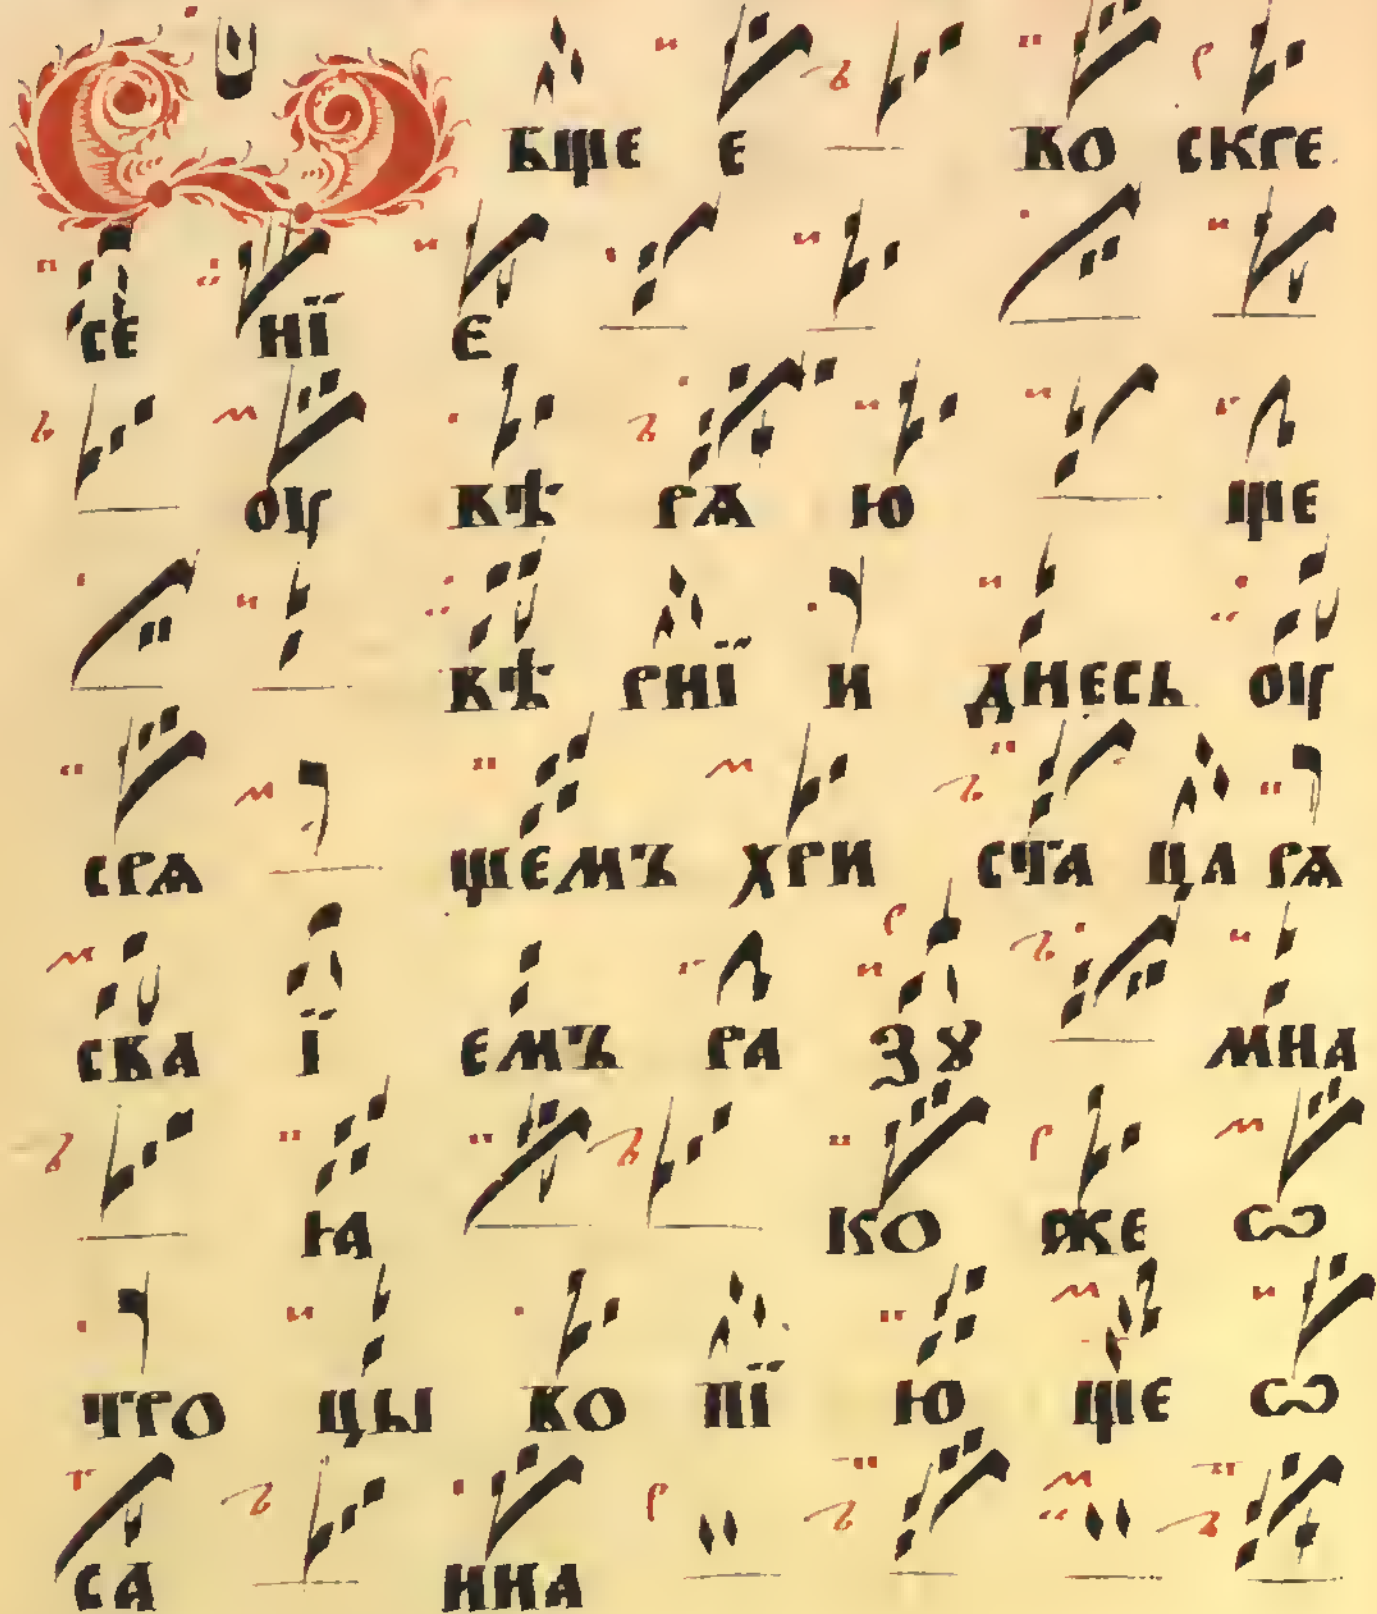 Ѡ бще е во скре
се нї е
оу вѣ рѧ ю ще
вѣ рнї и днесь оу
срѧ щемъ хри ста ца рѧ
сва ї емъ ра зꙋ мна
ꙗ ко же ѡ
тро цы во пї ю ще ѡ
са нна